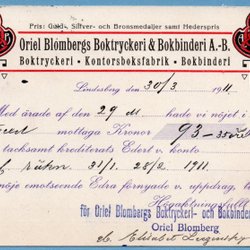 Pris: Guld-, Silfver- och Bronsmedaljer samt Hederspris
Oriel Blombergs Boktryckeri & Bokbinderi A.-B.
Boktryckeri · Kontorsboksfabrik · Bokbinderi
Lindesberg den 30/3 1911
Med ärade af den 29 dſ hade vi nöjet i
mottaga Kronor 93-
tacksamt krediterats Edert v. konto
af räkn 31/1. 28/2 1911.
nöje emotseende Edra förnyade v. uppdrag,
Högaktningsfullt
för Oriel Blombergs Boktryckeri- och Bokbinderi
Oriel Blomberg